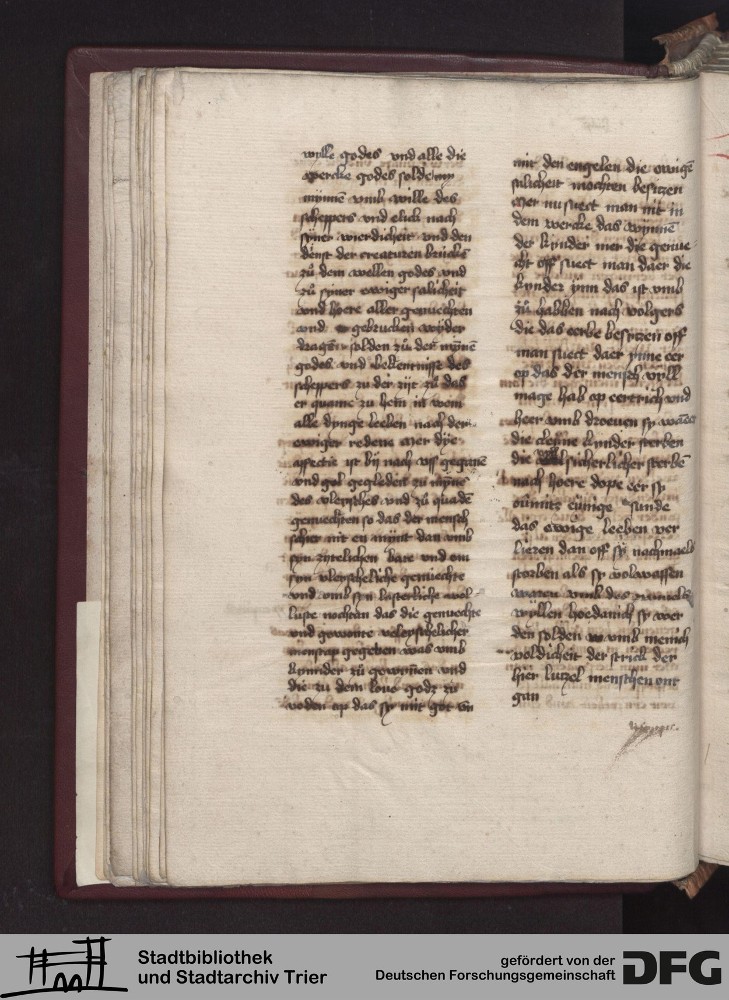 wylle godes vnd alle die
wercke godes solde my
mynnē vmb wille des
scheppers vnd elick nach
syner wierdicheit vnd den
dēnst der creaturen brucke
zü dem wellen godes vnd
zü syner ewiger salicheit
vnd hoere aller genuechten
vnd gebrucken wyder
dragē solden zü der mynē
godes vnd bekentnisse des
scheppers zu der zijt zü das
er quame zu hem in wem
alle dynge leeben nach der
ewiger redene mer dye
affectie ist bij nach vss gegane
vnd gol gegleden zu mynē
des vleysches vnd zü quadē
genuechten so das der mensch
schier nit en mynt dan vmb
syn zytelichen bate vnd om
syn vleyscheliche genuechte
vnd vmb syn lasterliche wol
luste nochtan das die genuechte
vnd gewonte vleyschelicher
gegeben was vmb
kynnder zü gewynnen vnd
die zu dem loue godz zu
voden op das sy mit got vn
mit den engelen die ewigē
salicheit mochten besitzen
mer nu suect man nit in
dem wercke das wynnē
der kynder mer die genue
cht off suect man daer die
kynder ynn das ist vmb
zü habben nach volgers
die das eerbe besitzen off
man suect daer ynne eer
op das der mensch vyll
mage hab op eertrich vnd
heer vmb droeuen sy
die cleyne kynder sterben
die sicherlicher sterbē
nach hoere dope eer sy
oumits eynige sunde
das ewige leeben ver
liezen dan off sy nachmaels
storben als sy volwassen
waren vmb des
wyllen hoedanich sy wer
den solden vmb menich
voldicheit der strick der
hier lutzel menschen ont
gan
Stadtbibliothek
und Stadtarchiv Trier
gefördert von der
Deutschen Forschungsgemeinschaft
DFG